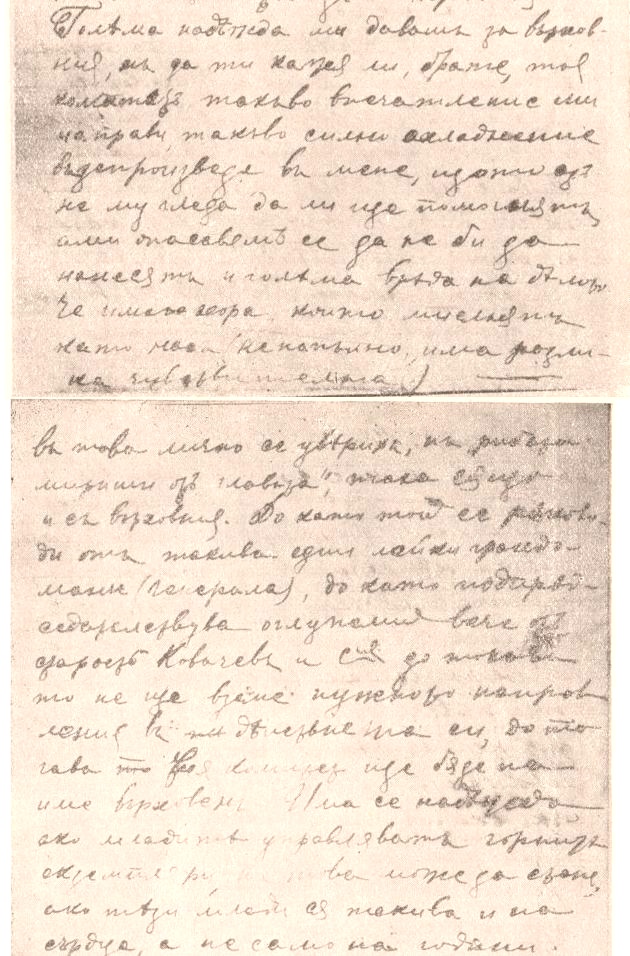 Голѣма надѣжда ми давашъ за върхов-
ния, нъ да ти кажа ли, брате, тоя
комитетъ такъво впечатление ми
направи, такъво силно охлаждение
въспроизведе въ мене, щото
не му гледа да ли ще помогнятъ,
ами опасявамъ се да не би да
нанесятъ и голѣма врѣда на дѣлото
Че има и хора, които мислятъ
като наса (не напълно, има разли-
ка чувствителна)
въ това лично се увѣрихъ, нъ „рибата
мирише отъ главата“, така също
и съ върховния. До като той се ржково-
ди отъ такива едни лейки грандо-
мани (генерала), до като подпрѣд-
седателствува оглупелия вече отъ
старость Ковачевъ и до тогава
то не ще вземе нужното направ-
ление въ дѣйствие та си, до то-
гава то тоя комитетъ ще бѫде на
име върховенъ. Има се надѣжда
ако младитѣ управляватъ горнитѣ
екземпляри, но това може да стане,
ако тѣзи млади сѫ такива и на
сърдца, а не само на години.